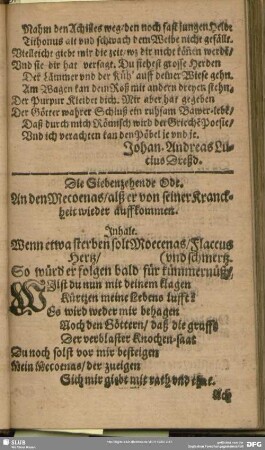 Nahm den Achilles weg/ den noch fast jungen Held:
Tithonus alt vnd schwach dem Weibe nicht gefällt.
Vielleicht giebt mir die zeit/ wz dir nicht köñen werde/
Vnd sie dir hat versagt. Du siehest grosse Herden
Der Lämmer vnd der Küh' auff deiner Wiese gehn.
Am Wagen kan dein Roß mit andern dreyen stehn/
Der Purpur Kleidet dich. Mir aber hat gegeben
Der Götter wahrer Schluß ein ruhsam Bawer-lebē/
Daß durch mich Römisch wird der Griechē Poesie/
Vnd ich verachten kan den Pöbel je vnd je.
Johan. Andreas Lu-
cius Dreßd.
Die Siebenzehende Ode.
An den Mecoenas/ alß er von seiner Kranck-
heit wieder auffkommen.
Inhalt.
Wenn etwa sterben solt Moecenas/ Flaccus
Hertz/ (vnd schmertz.
So würd er folgen bald für kümmernüß/
WIlst du nun mit deinem klagen
Kürtzen meine Lebens lufft?
Es wird weder mir behagen
Noch den Göttern/ daß die grufft
Der verblaster Knochen-saat
Du noch solst vor mir besteigen
Mein Mecoenas/ der zueigen
Sich mir giebt mit rath vnd that.
Ach
SLUB
DFG